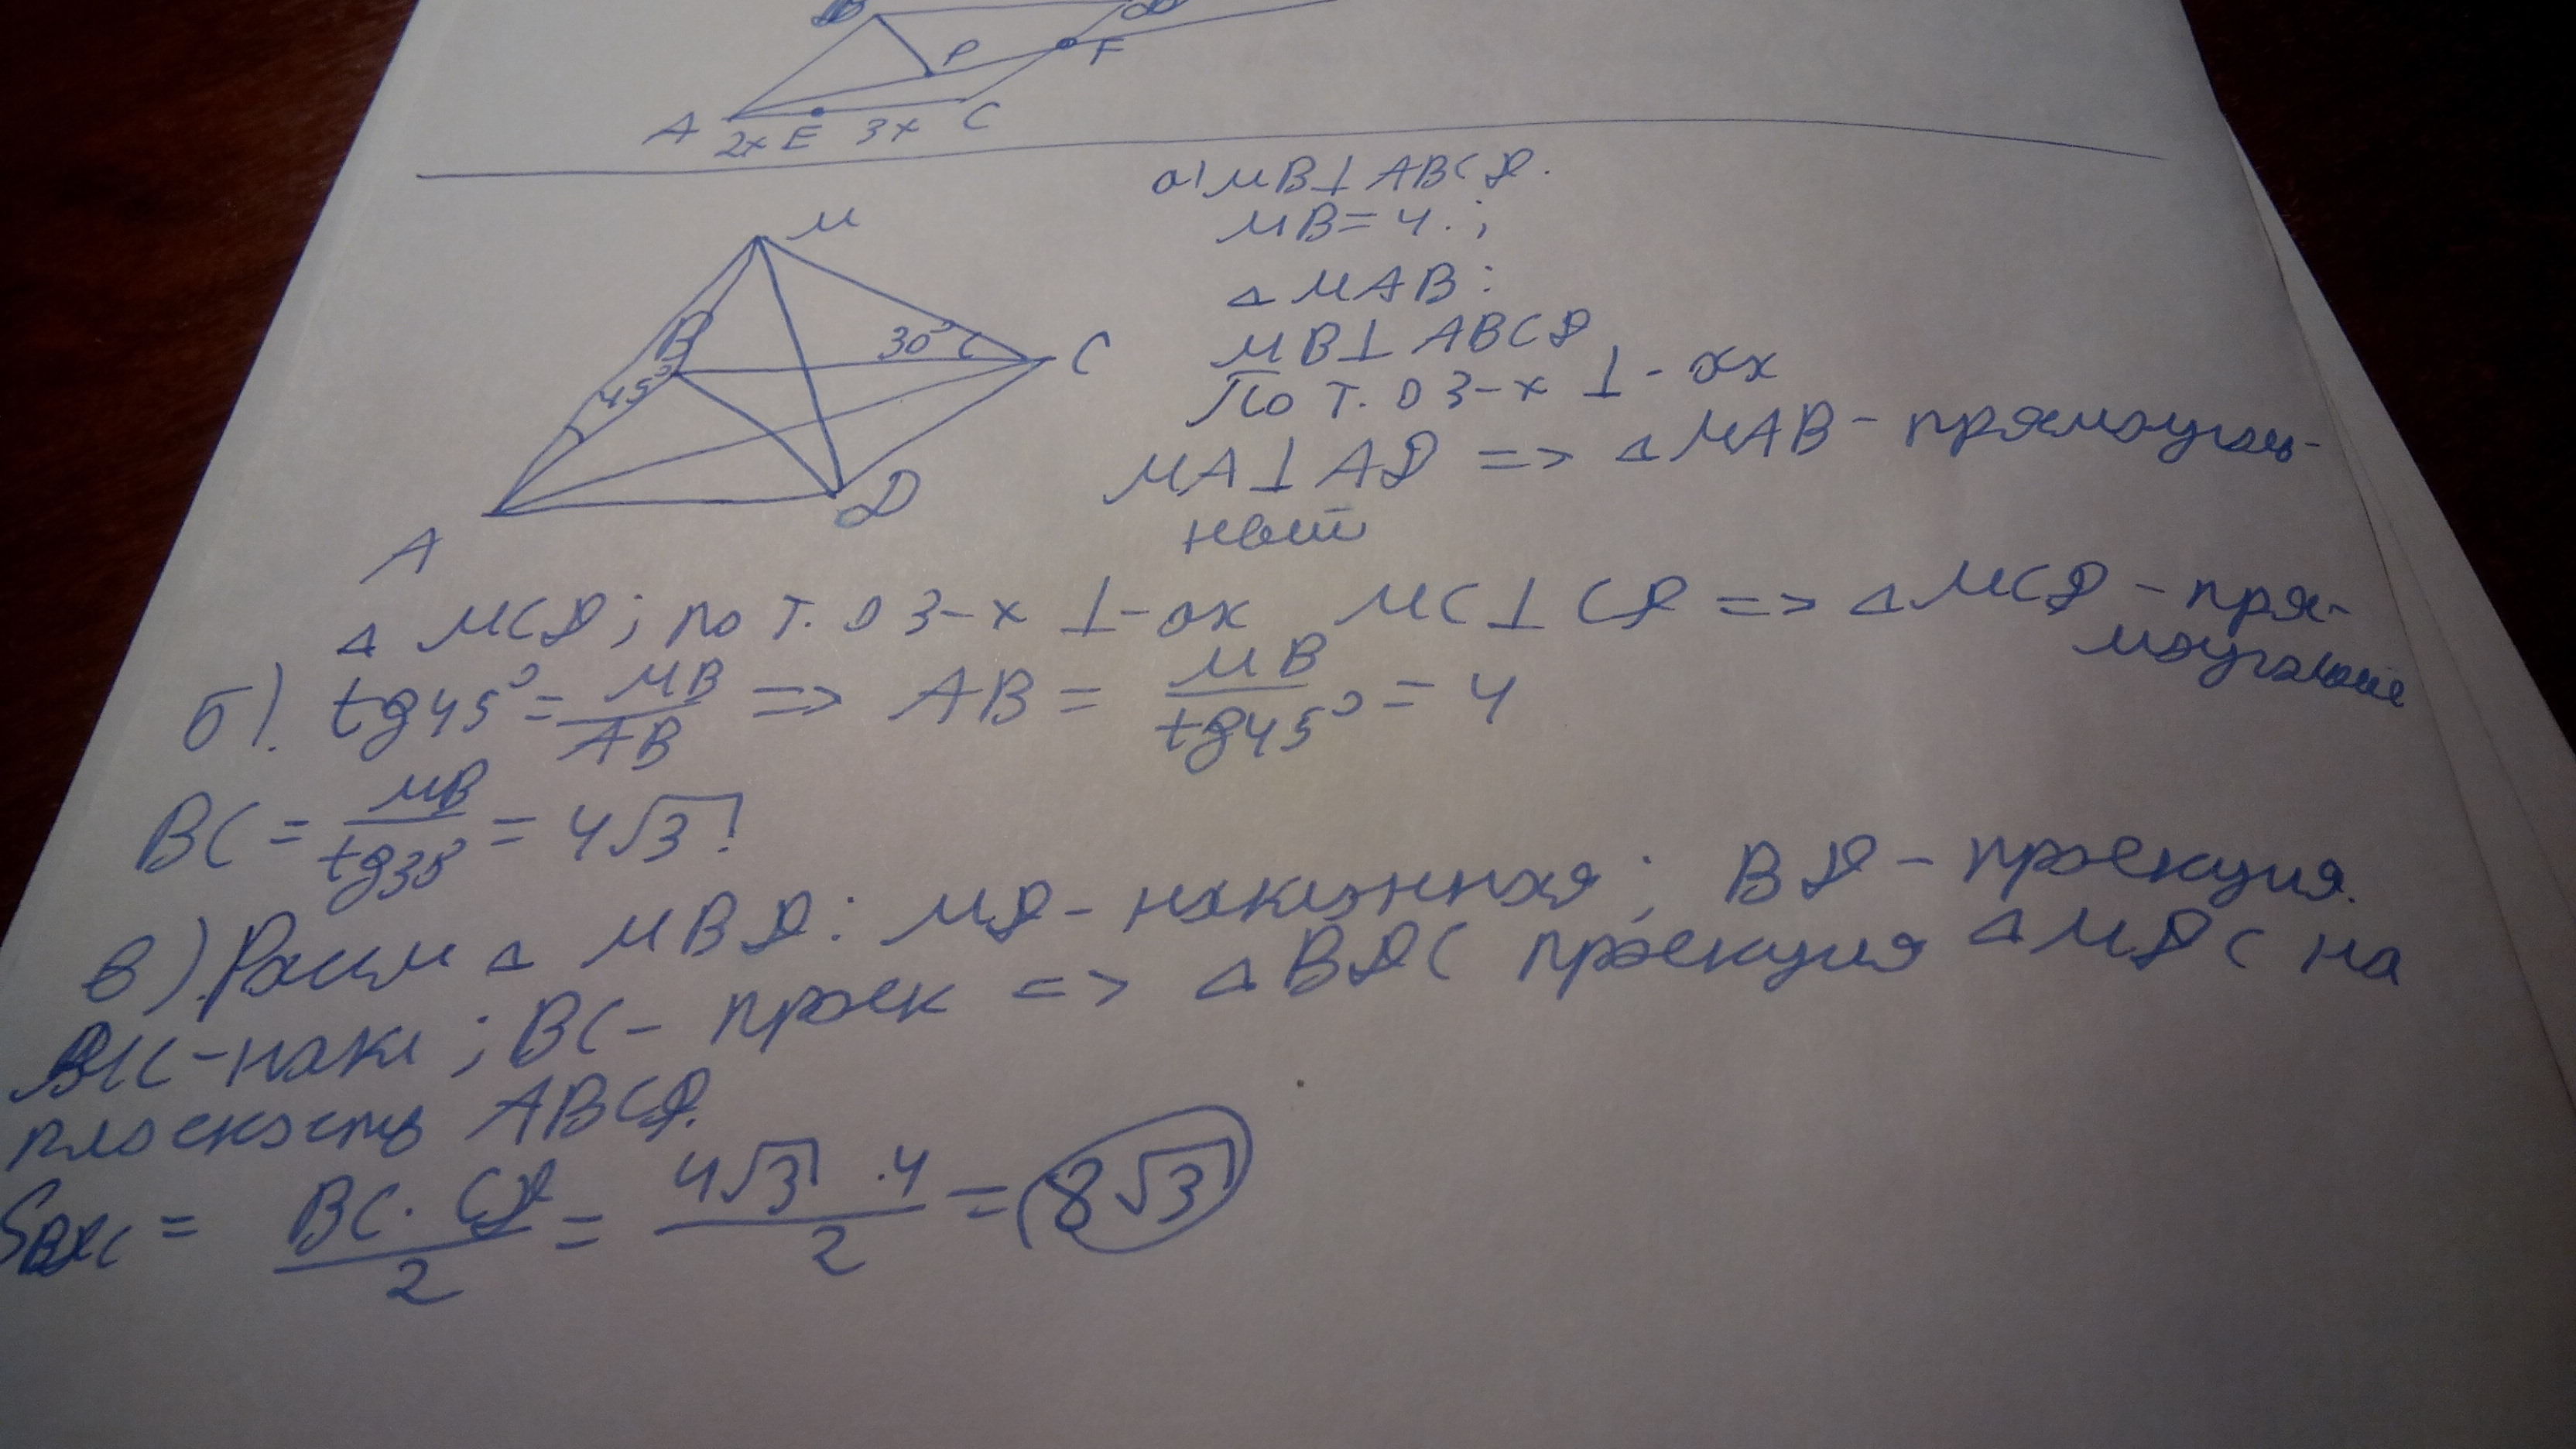 P
F
A 2x E 3x C
а) MB⊥ABCD.
MB=4.;
M
△MAB:
B 30° C
MB⊥ABCD
45°
По т. о 3-х ⊥-ах
MA⊥AD => △MAB - прямоуголь-
ный
D
A
△MCD; по т. о 3-х ⊥-ах MC⊥CD => △MCD - пря-
моугольные
б). tg45°= MB/AB => AB = MB/tg45° = 4
BC = MB/tg30° = 4√3
в). Рассм △MBD: MD - наклонная; BD - проекция.
MC - накл; BC - проек => △BDC проекция △MDC на
плоскость ABCD.
S BDC = BC·CD/2 = 4√3 ·4/2 = 8√3